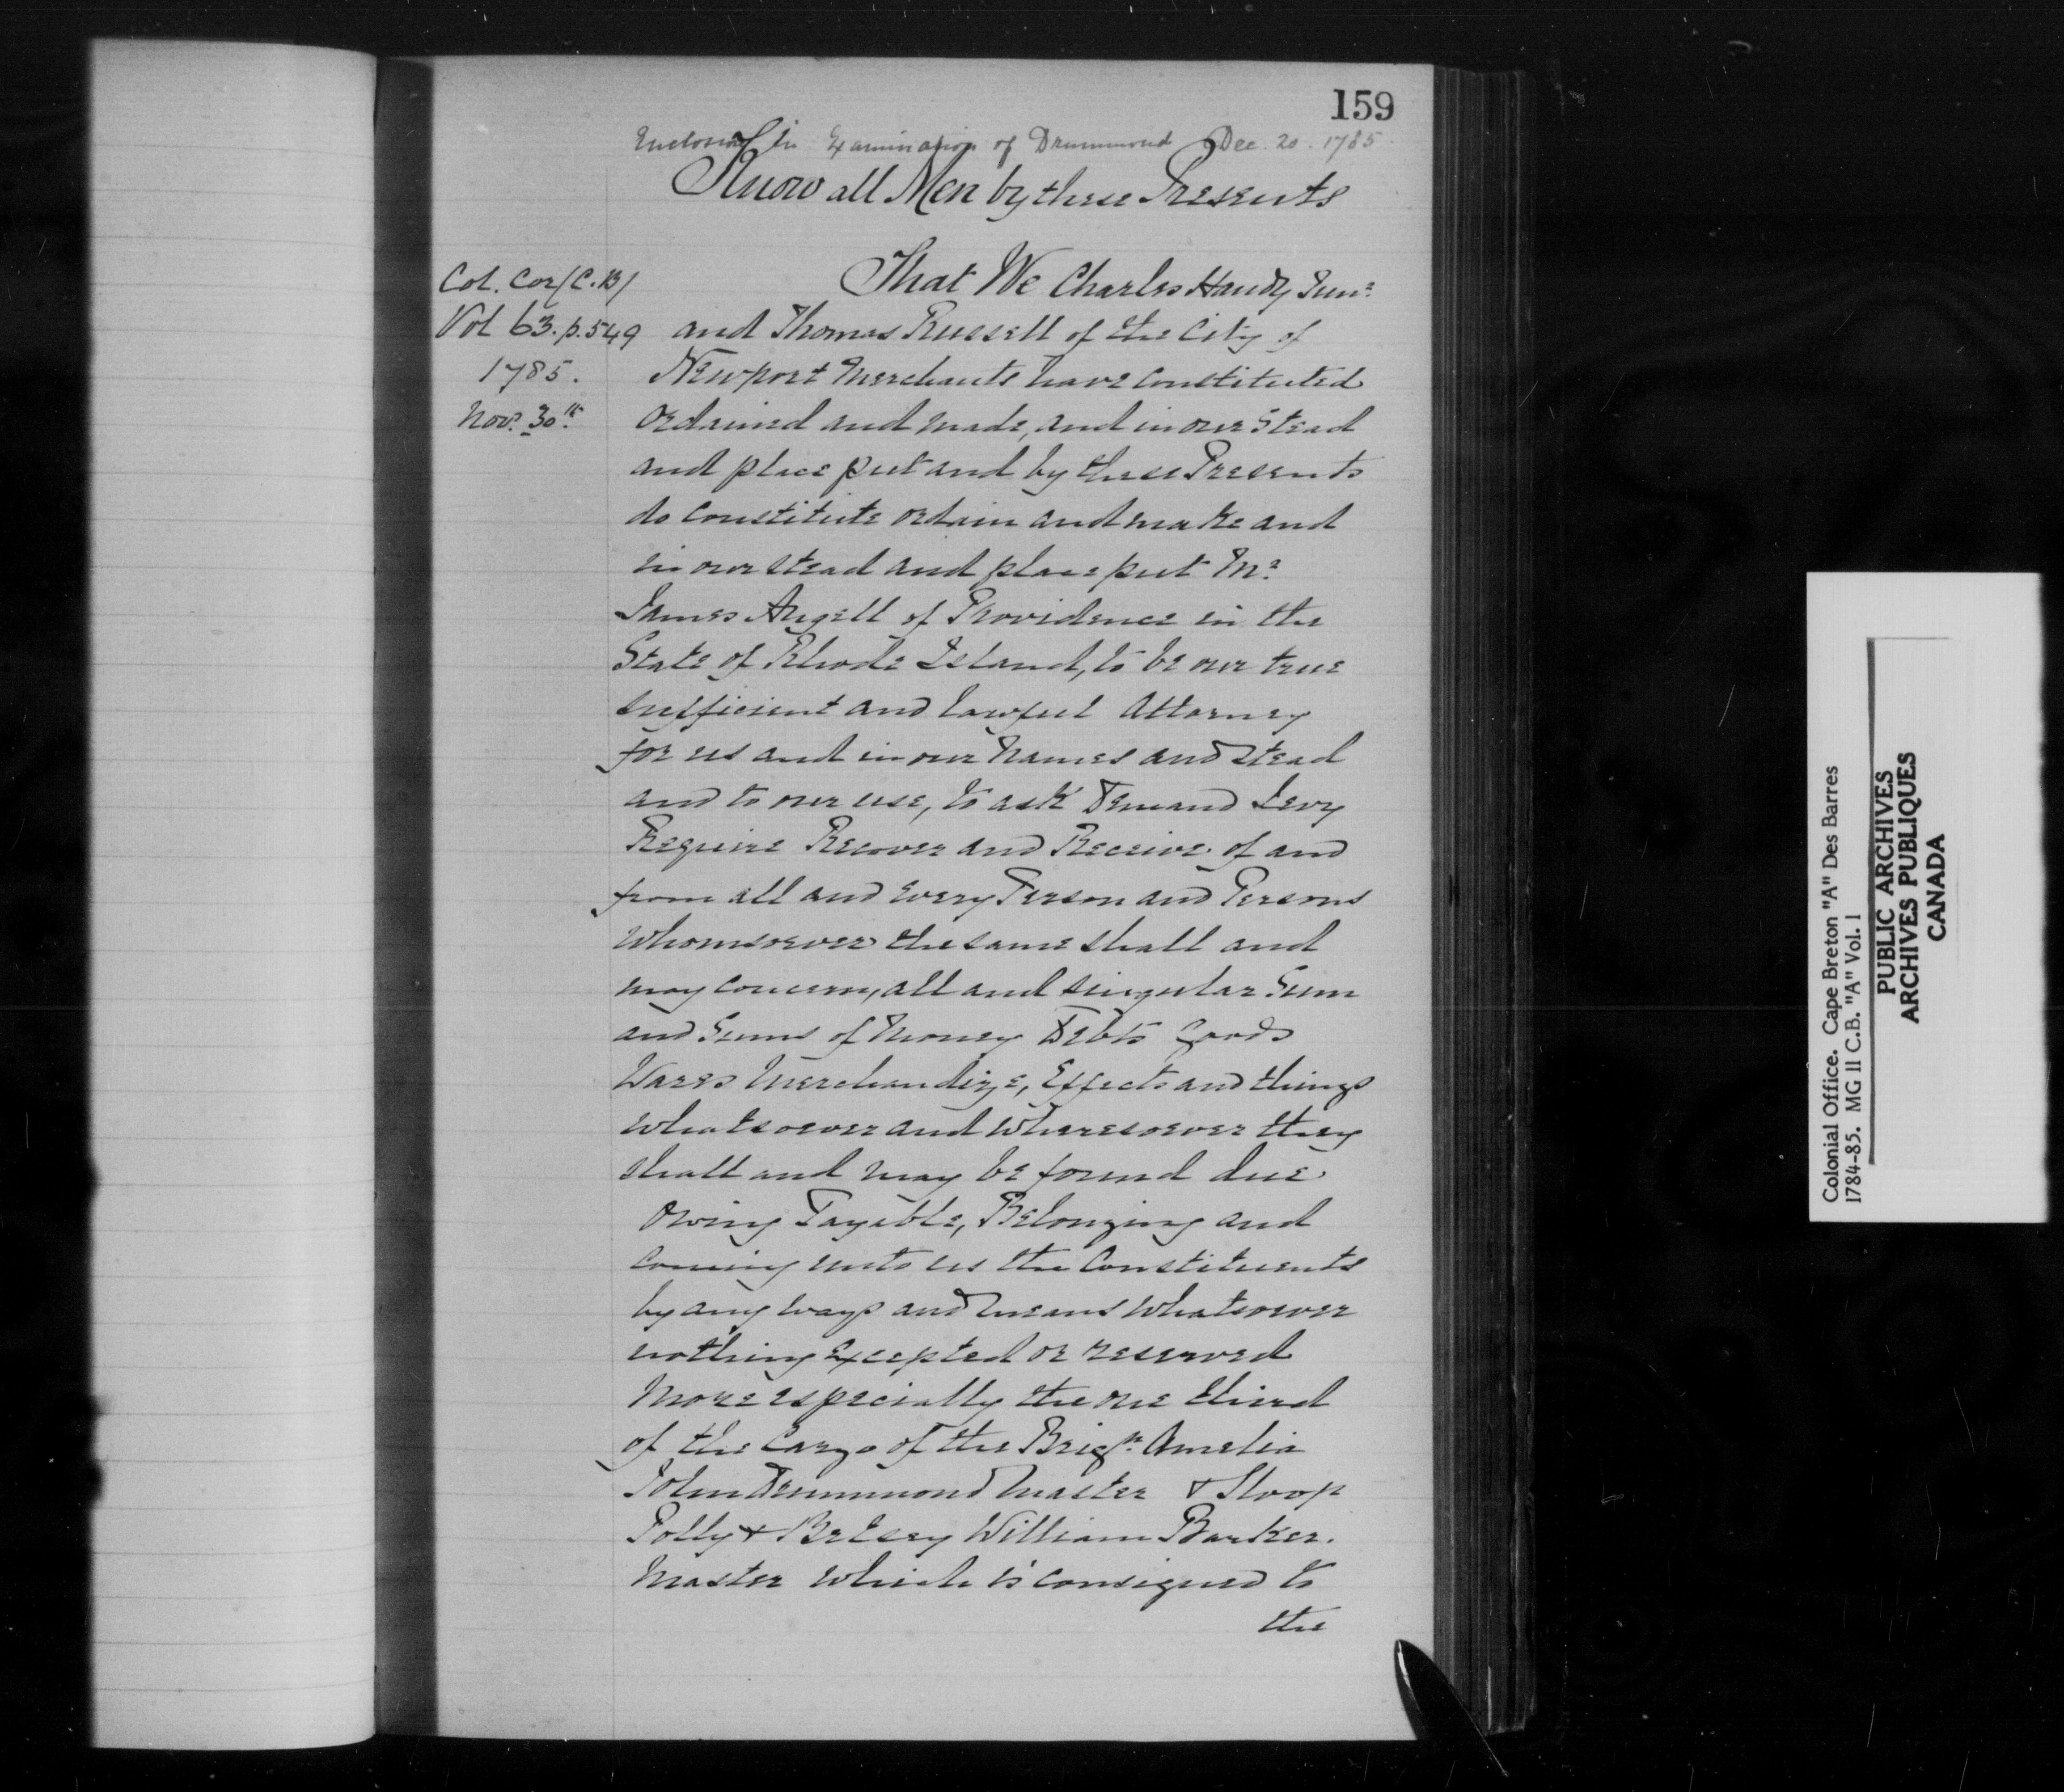 159
Enclosed in Examination of Drummond Dec. 20. 1785.
Know all Men by these Presents
Col. Cor (C.B)
Vol 63. p. 549
1785.
Nov. 30th
That We Charles Handy Junr
and Thomas Russell of the City of
Newport Merchants have constituted
Ordained and made, and in our Stead
and place put and by these Presents
do constitute ordain and make and
in our stead and place put Mr
James Angell of Providence in the
State of Rhode Island, to be our true
sufficient and lawful Attorney
for us and in our Names and Stead
and to our use, to ask Demand Levy
Require Recover and Receive of and
from all and Every Person and Persons
whomsoever the same shall and
may concern, all and singular Sum
and Sums of Money Debts Goods
Wares Merchandize, Effects and things
whatsoever and Wheresoever they
shall and may be found due
Owing Payable, Belonging and
coming unto us the Constituents
by any ways and means Whatsoever
nothing Excepted or reserved
More especially the one third
of the Cargo of the Brign Amelia
John Drummond Master & Sloop
Polly & Betsey William Barker.
Master which is consigned to
the
Colonial Office. Cape Breton "A" Des Barres
1784-85. MG 11 C.B. "A" Vol. 1
PUBLIC ARCHIVES
ARCHIVES PUBLIQUES
CANADA